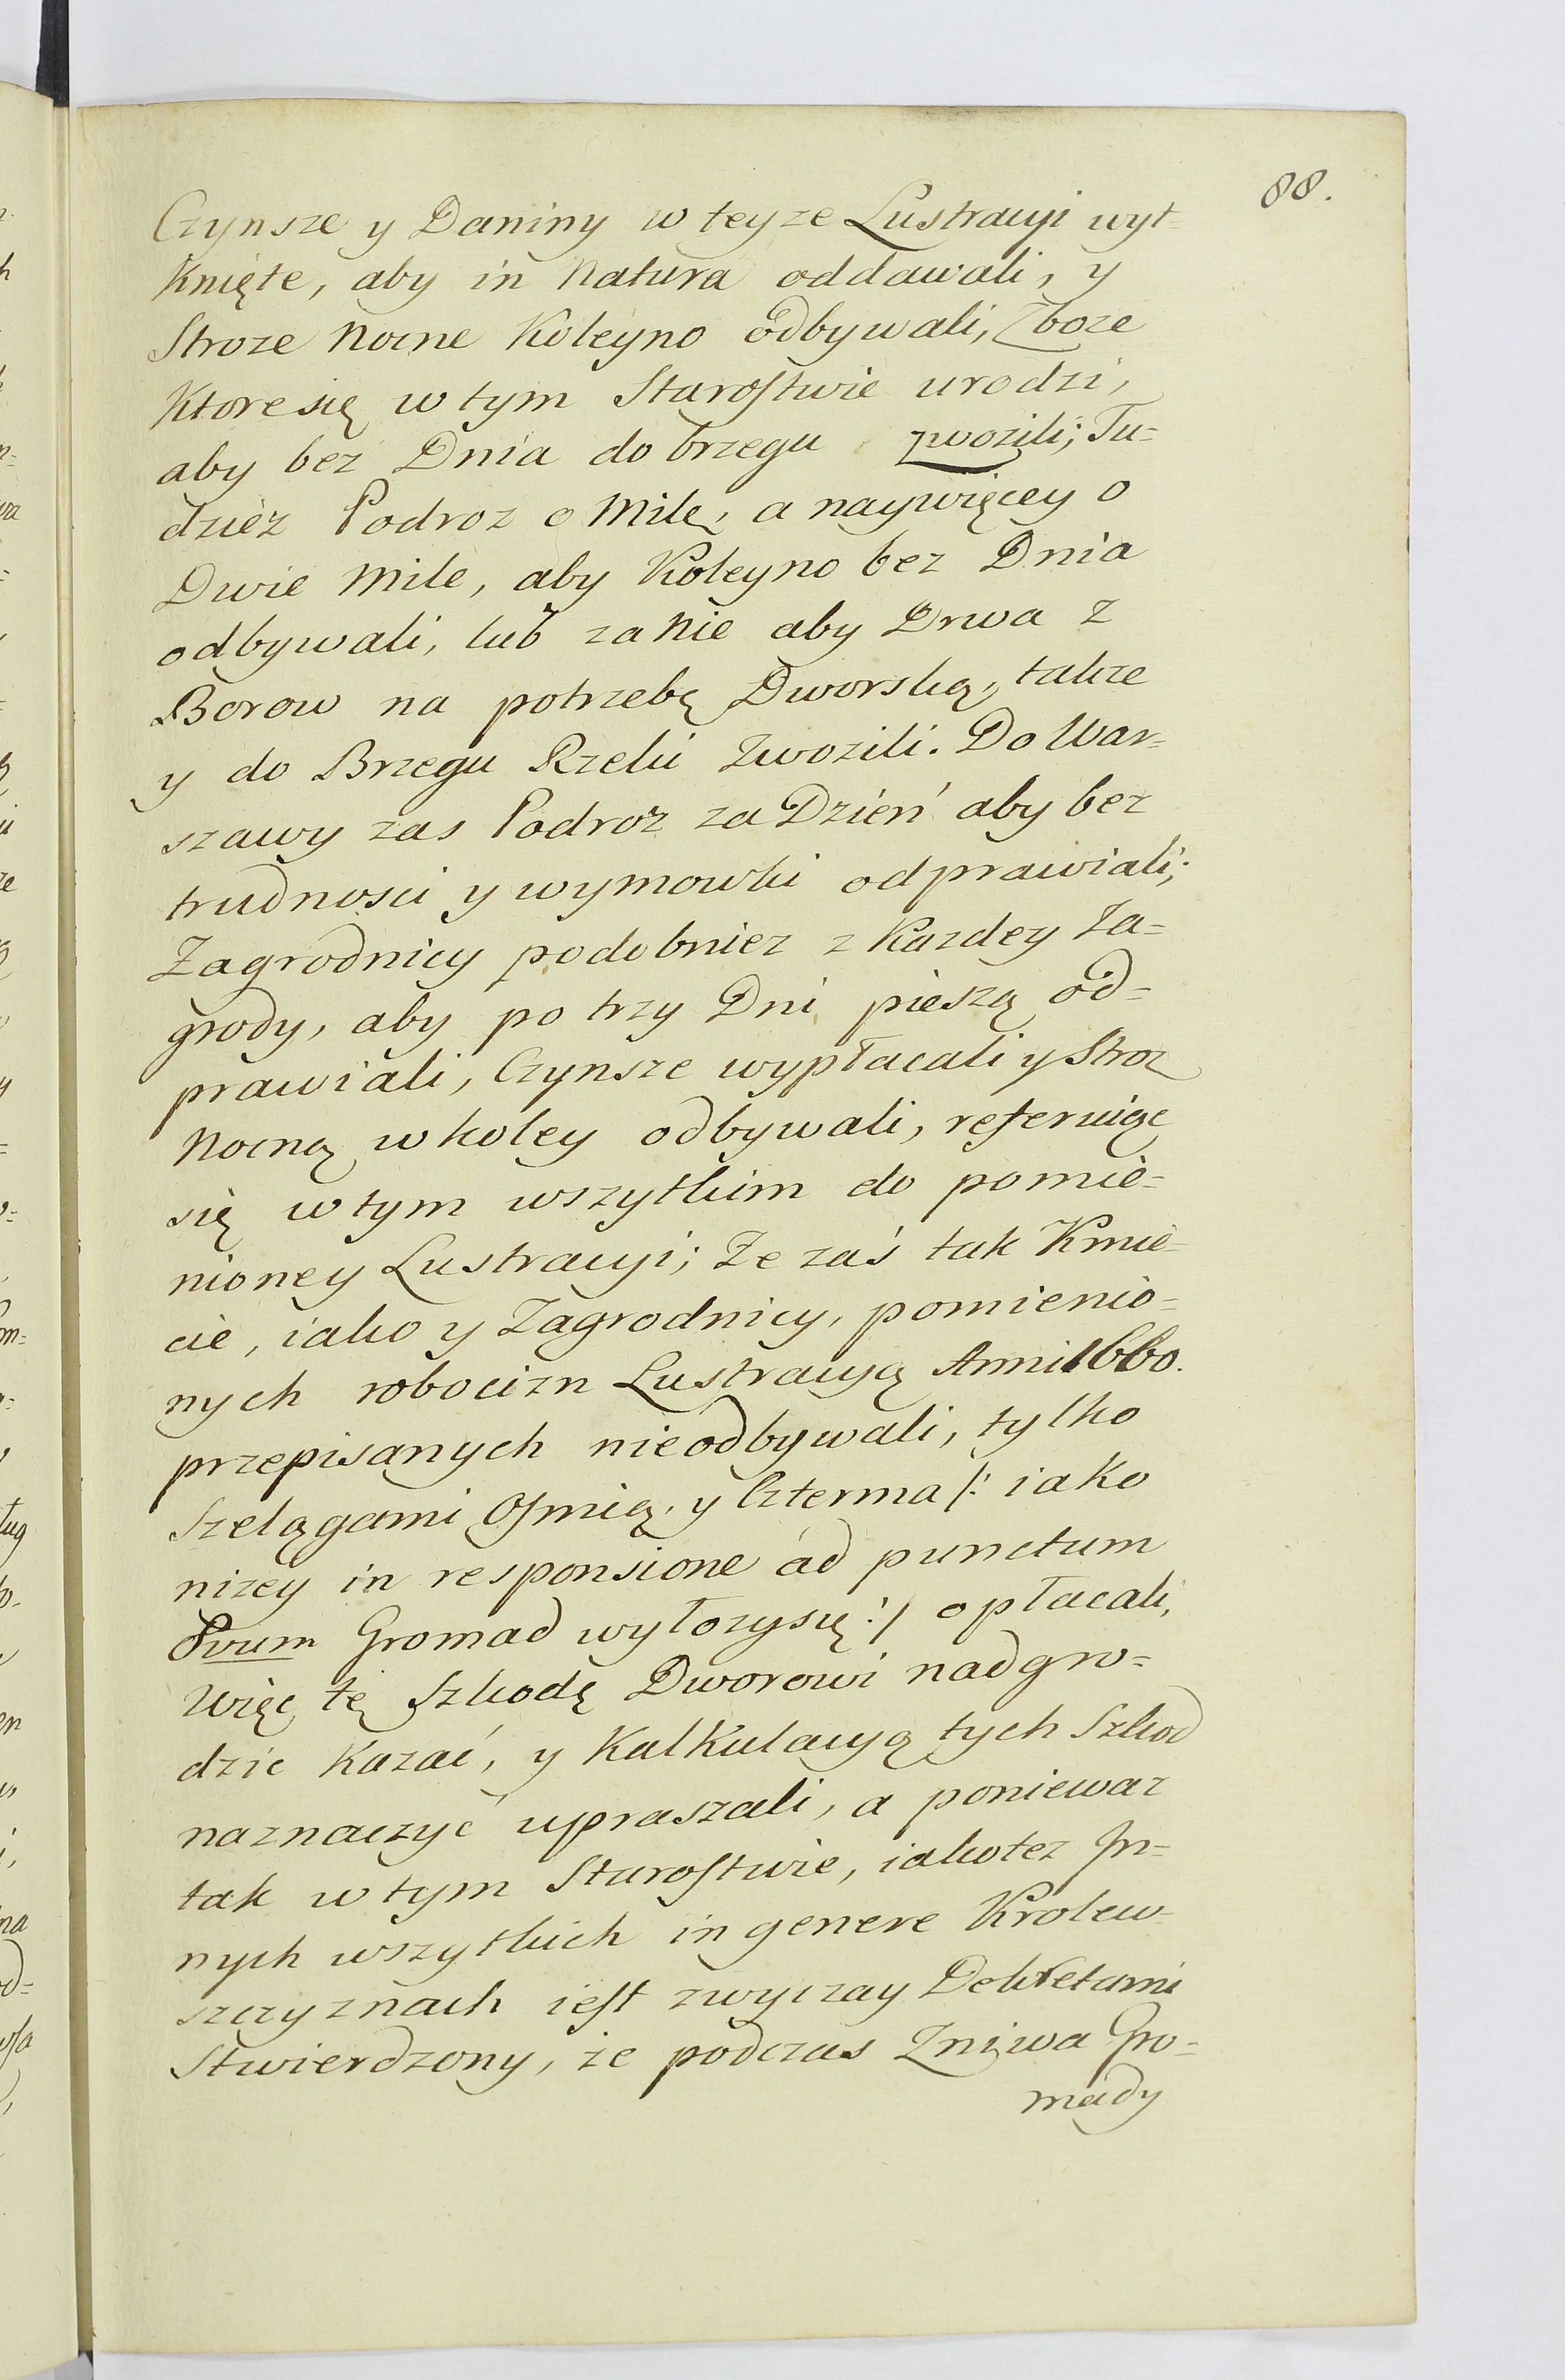 88.
Czynsze y Daniny w teyze Lustracyi wyt-
knięte, aby in Natura oddawali, y
Stroze Nocne Koleyno odbywali, Zboze
Ktore się w tym Starostwie urodzi,
aby bez Dnia do brzegu zwozili; Tu-
dzież Podroz o Milę, a naywięcey o
Dwie Mile, aby Koleyno bez Dnia
odbywali, lub za nie aby Drwa z
Borow na potrzebę Dworską, takze
y do Brzegu Rzeki zwozili. Do War-
szawy zas Podroz za Dzień aby bez
trudnosci y wymowki odprawiali;
Zagrodnicy podobniez z Kazdey Za-
grody, aby po trzy Dni pieszą od-
prawiali, Czynsze wypłacali y Stroz
Nocną w koley odbywali, referuiąc
się w tym wszytkim do pomie-
nioney Lustracyi; Ze zaś tak Kmie-
cie, iako y Zagrodnicy, pomienio-
nych robocizn Lustracyą Anni 1660.
przepisanych nieodbywali, tylko
Szelągami Osmią, y Czterma /: iako
nizey in responsione ad punctum
8vum Gromad wyłozy się :/ opłacali,
Więc tę Szkodę Dworowi nadgro-
dzic Kazać, y Kalkulacyą tych Szkod
naznaczyć upraszali, a poniewaz
tak w tym Starostwie, iakotez In-
nych wszytkich in genere Krolew-
szczyznach iest zwyczay Dekretami
Stwierdzony, że podczas Zniwa Gro-
mady